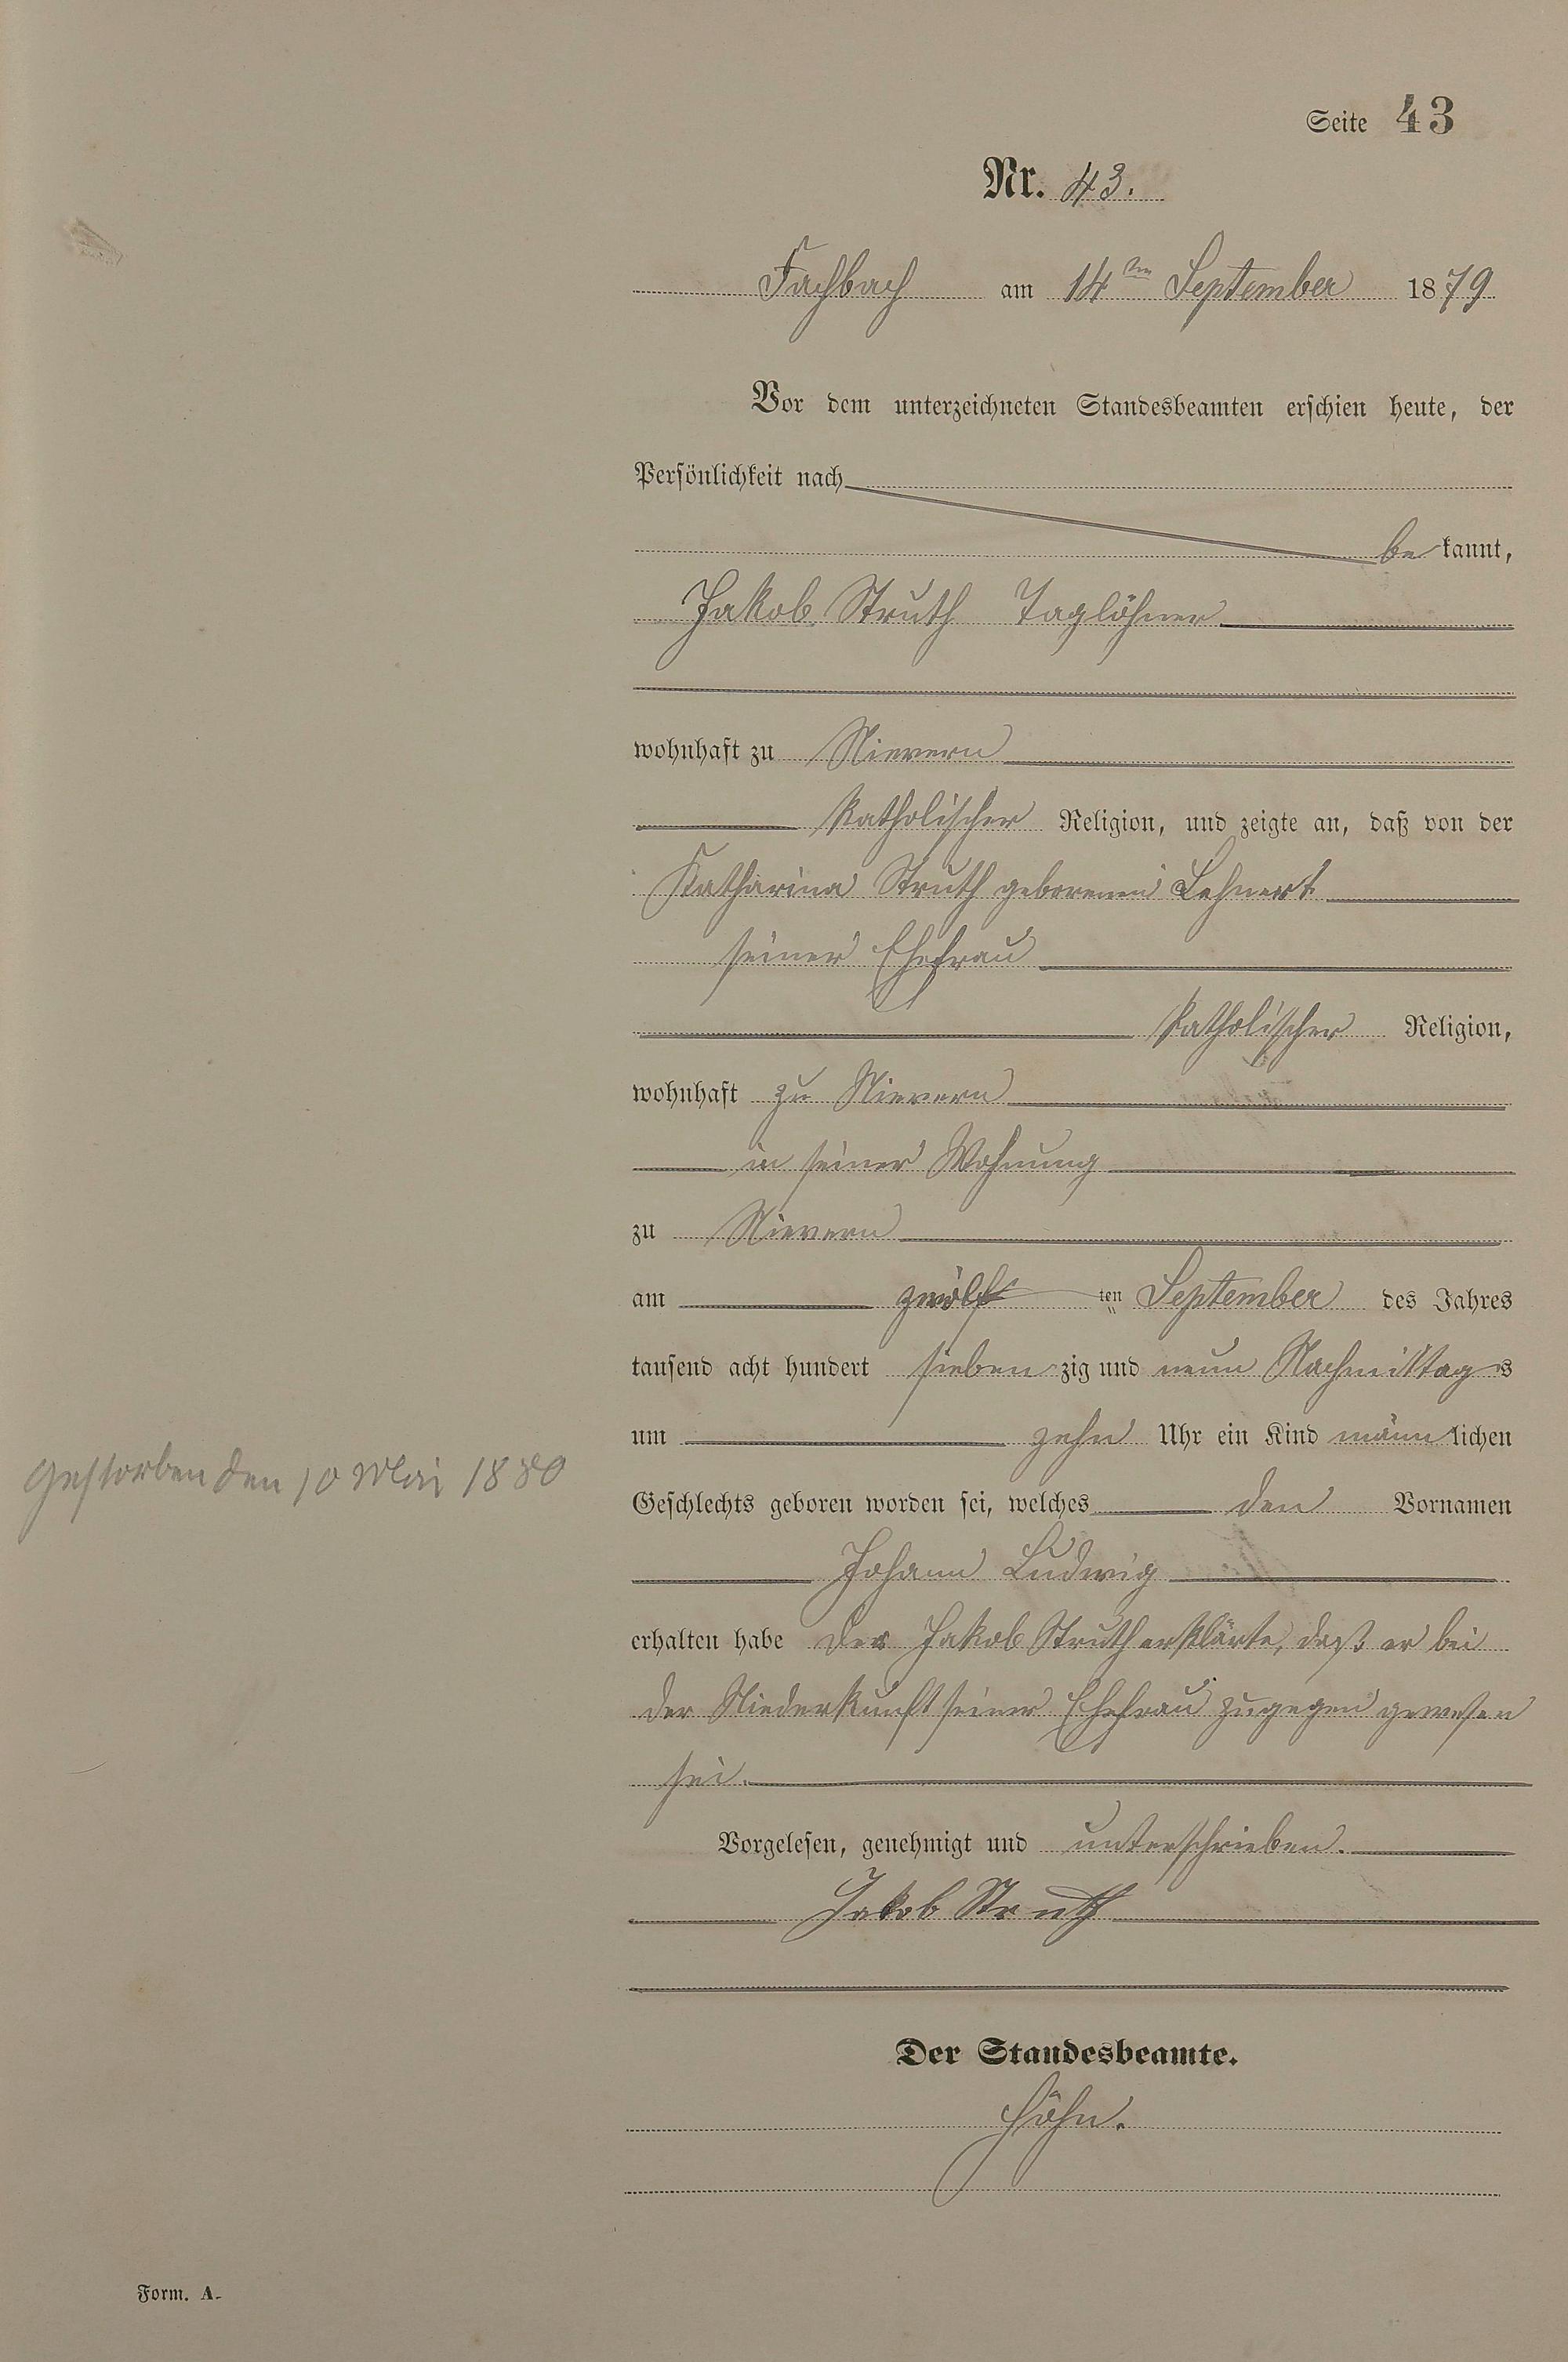 Seite 43
Nr. 43.
Fachbach am 14ten September 1879
Vor dem unterzeichneten Standesbeamten erschien heute, der
Persönlichkeit nach
be kannt,
Jakob Struth Taglöhner
wohnhaft zu Nievern
katholischer Religion, und zeigte an, daß von der
Katharina Struth geborenen Lehnert
seiner Ehefrau
katholischer Religion,
wohnhaft zu Nievern
in seiner Wohnung
zu Nievern
am zwölf ten September des Jahres
tausend acht hundert sieben zig und neun Nachmittag s
um zehn Uhr ein Kind männ lichen
Geschlechts geboren worden sei, welches den Vornamen
Gestorben den 10 Mai 1880
Johann Ludwig
erhalten habe Der Jakob Struth erklärte, daß er bei
der Niederkunft seiner Ehefrau zugegen gewesen
sei.
Vorgelesen, genehmigt und unterschrieben.
Jakob Struth
Der Standesbeamte.
Höhn.
Form. A.